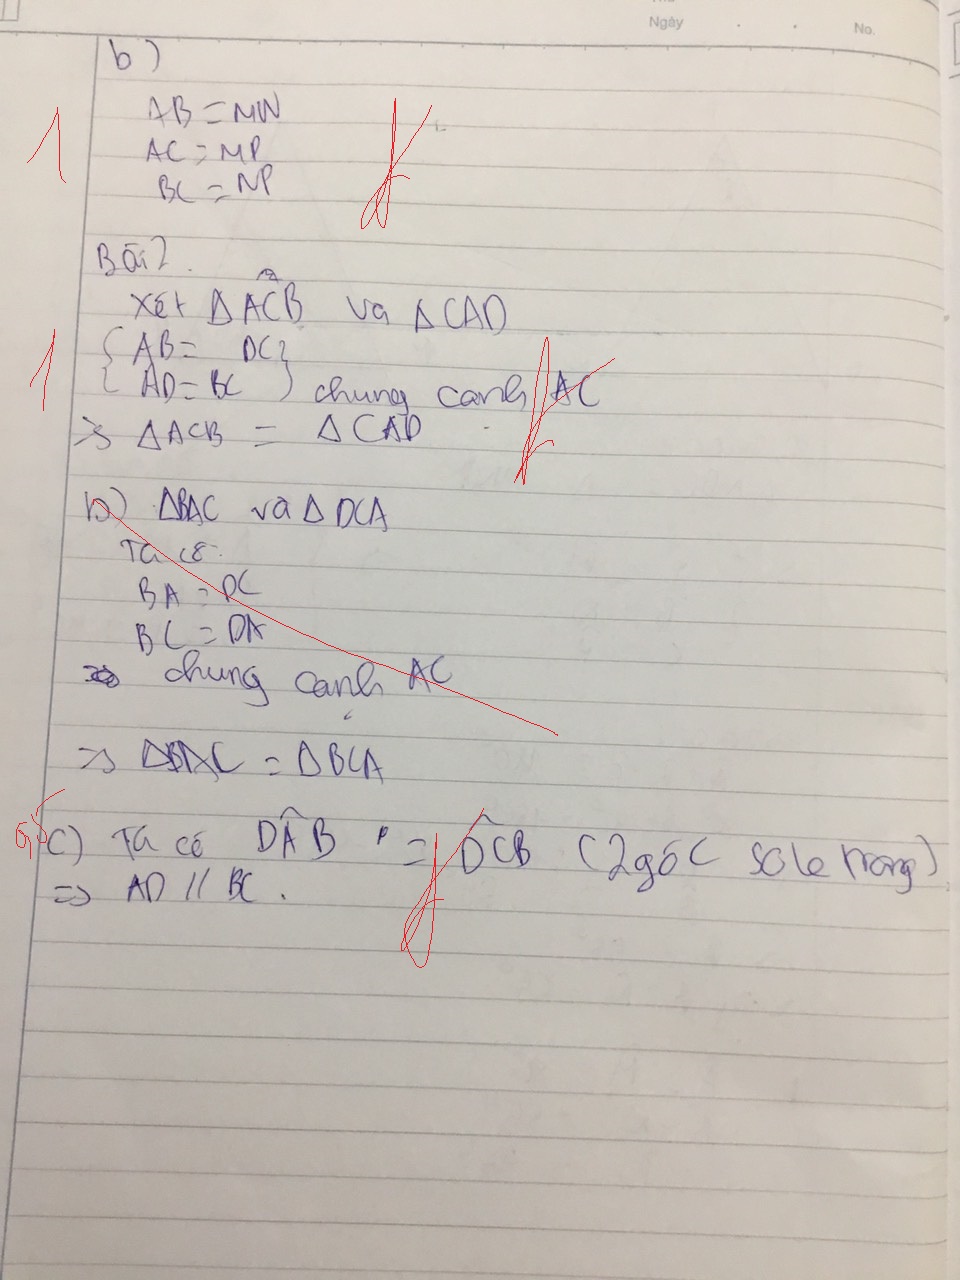 Ngày
No.
b)
1
AB = MN
AC = MP
BC = NP
Bài 2.
Xét Δ ACB và Δ CAD
1
AB = DC
AD = BC } chung cạnh AC
=> Δ ACB = Δ CAD
b) ΔBAC và Δ DCA
Ta có
BA = DC
BC = DA
chung cạnh AC
=> ΔBAC = ΔBCA
c) Ta có DÂB = DĈB (2 góc so le trong)
=> AD // BC.